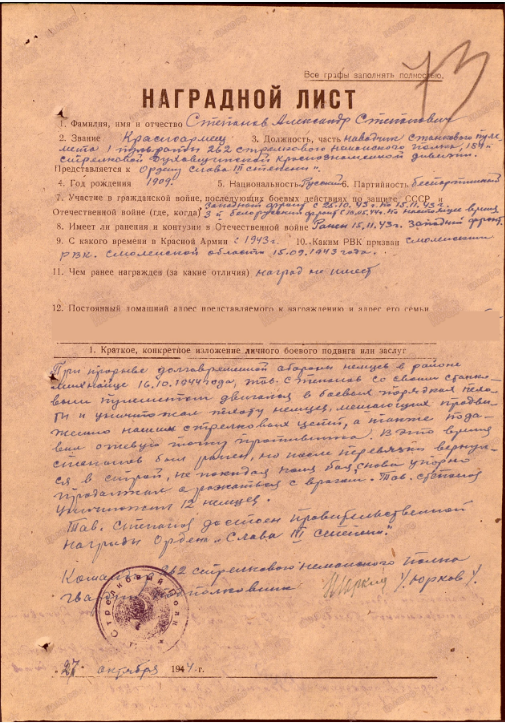 Все графы заполнять полностью.
73
НАГРАДНОЙ ЛИСТ
1. Фамилия, имя и отчество Степанов Александр Степанович
2. Звание Красноармеец 3. Должность, часть наводчик станкового пуле
мета 1 пульроты 262 стрелкового неманского полка, 184
стрелковой Духовщинской Краснознаменной дивизии.
Представляется к Ордену Слава III степени".
4. Год рождения 1909г. 5. Национальность Русский 6. Партийность беспартийный
7. Участие в гражданской войне, последующих боевых действиях по защите СССР и
Отечественной войне (где, когда) Западный фронт с 25.10.43г. по 15.11.43г.
3й белорусский фронт с по настоящее время
8. Имеет ли ранения и контузии в Отечественной войне Ранен 15.11.43г. Западный фронт.
9. С какого времени в Красной Армии с 1943г. 10. Каким РВК призван Смоленским
РВК. Смоленской области 15.09.1943 года.
11. Чем ранее награжден (за какие отличия) наград не имеет
12. Постоянный домашний адрес представляемого к награждению и адрес его семьи
1. Краткое, конкретное изложение личного боевого подвига или заслуг
При прорыве долговременной обороны немцев в районе
16.10.1944 года, тов. Степанов со своим станко-
вым пулеметом двигался в боевых порядках пехо-
ты и уничтожал немцев, мешающих продви-
жению наших стрелковых цепей, а также пода-
вил огневую точку противника. В это время
Степанов был ранен, но после перевязки вернул-
ся в строй, не покидая поля боя, снова упорно
продолжал сражаться с врагом. Тов. Степанов
уничтожил 12 немцев.
Тов. Степанов достоин правительственной
награды Орден „Слава III степени".
Командир 262 стрелкового неманского полка
гвардии подполковник
27 октября 1944 г.